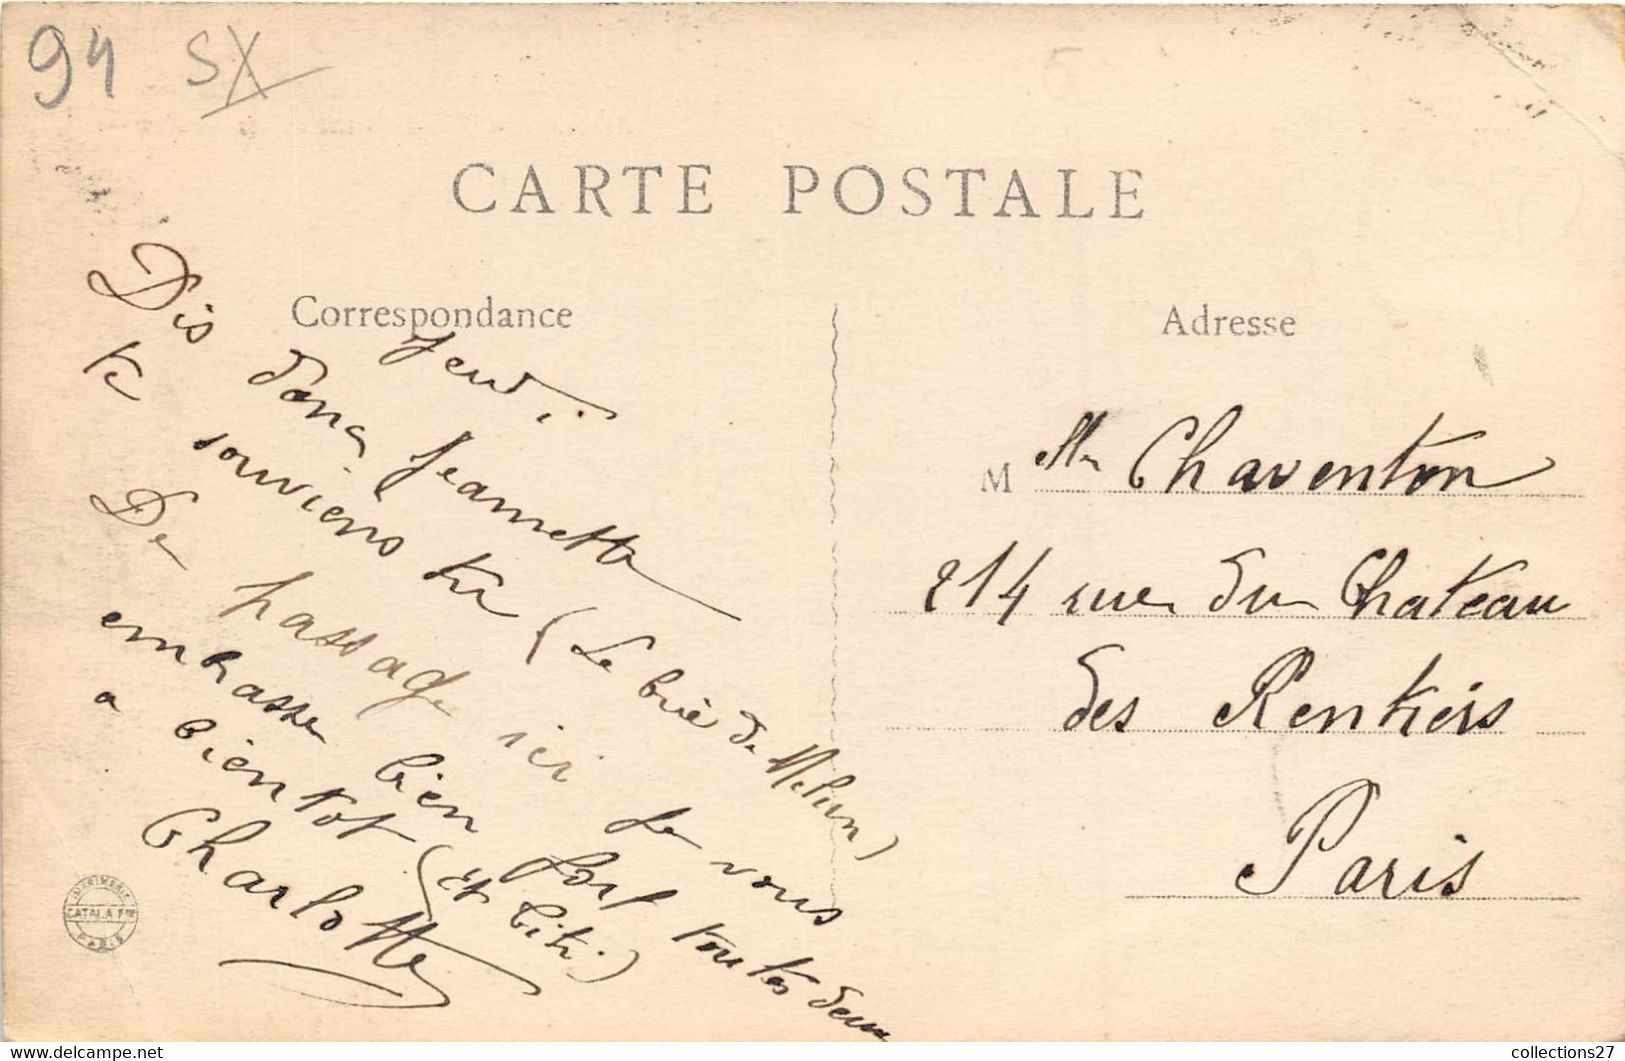 94 SX
CARTE POSTALE
Correspondance
Adresse
Jeudi
Dis donc Jeannette
te souviens tu (Le brie de Melun)
De passage ici Je vous
embrasse bien fort toutes deux
a bientot (et Titi)
Charlotte
M Mme Chaventon
214 rue du Chateau
des Rentiers
Paris
IMPRIMERIE
CATALA Fres
PARIS
collections27